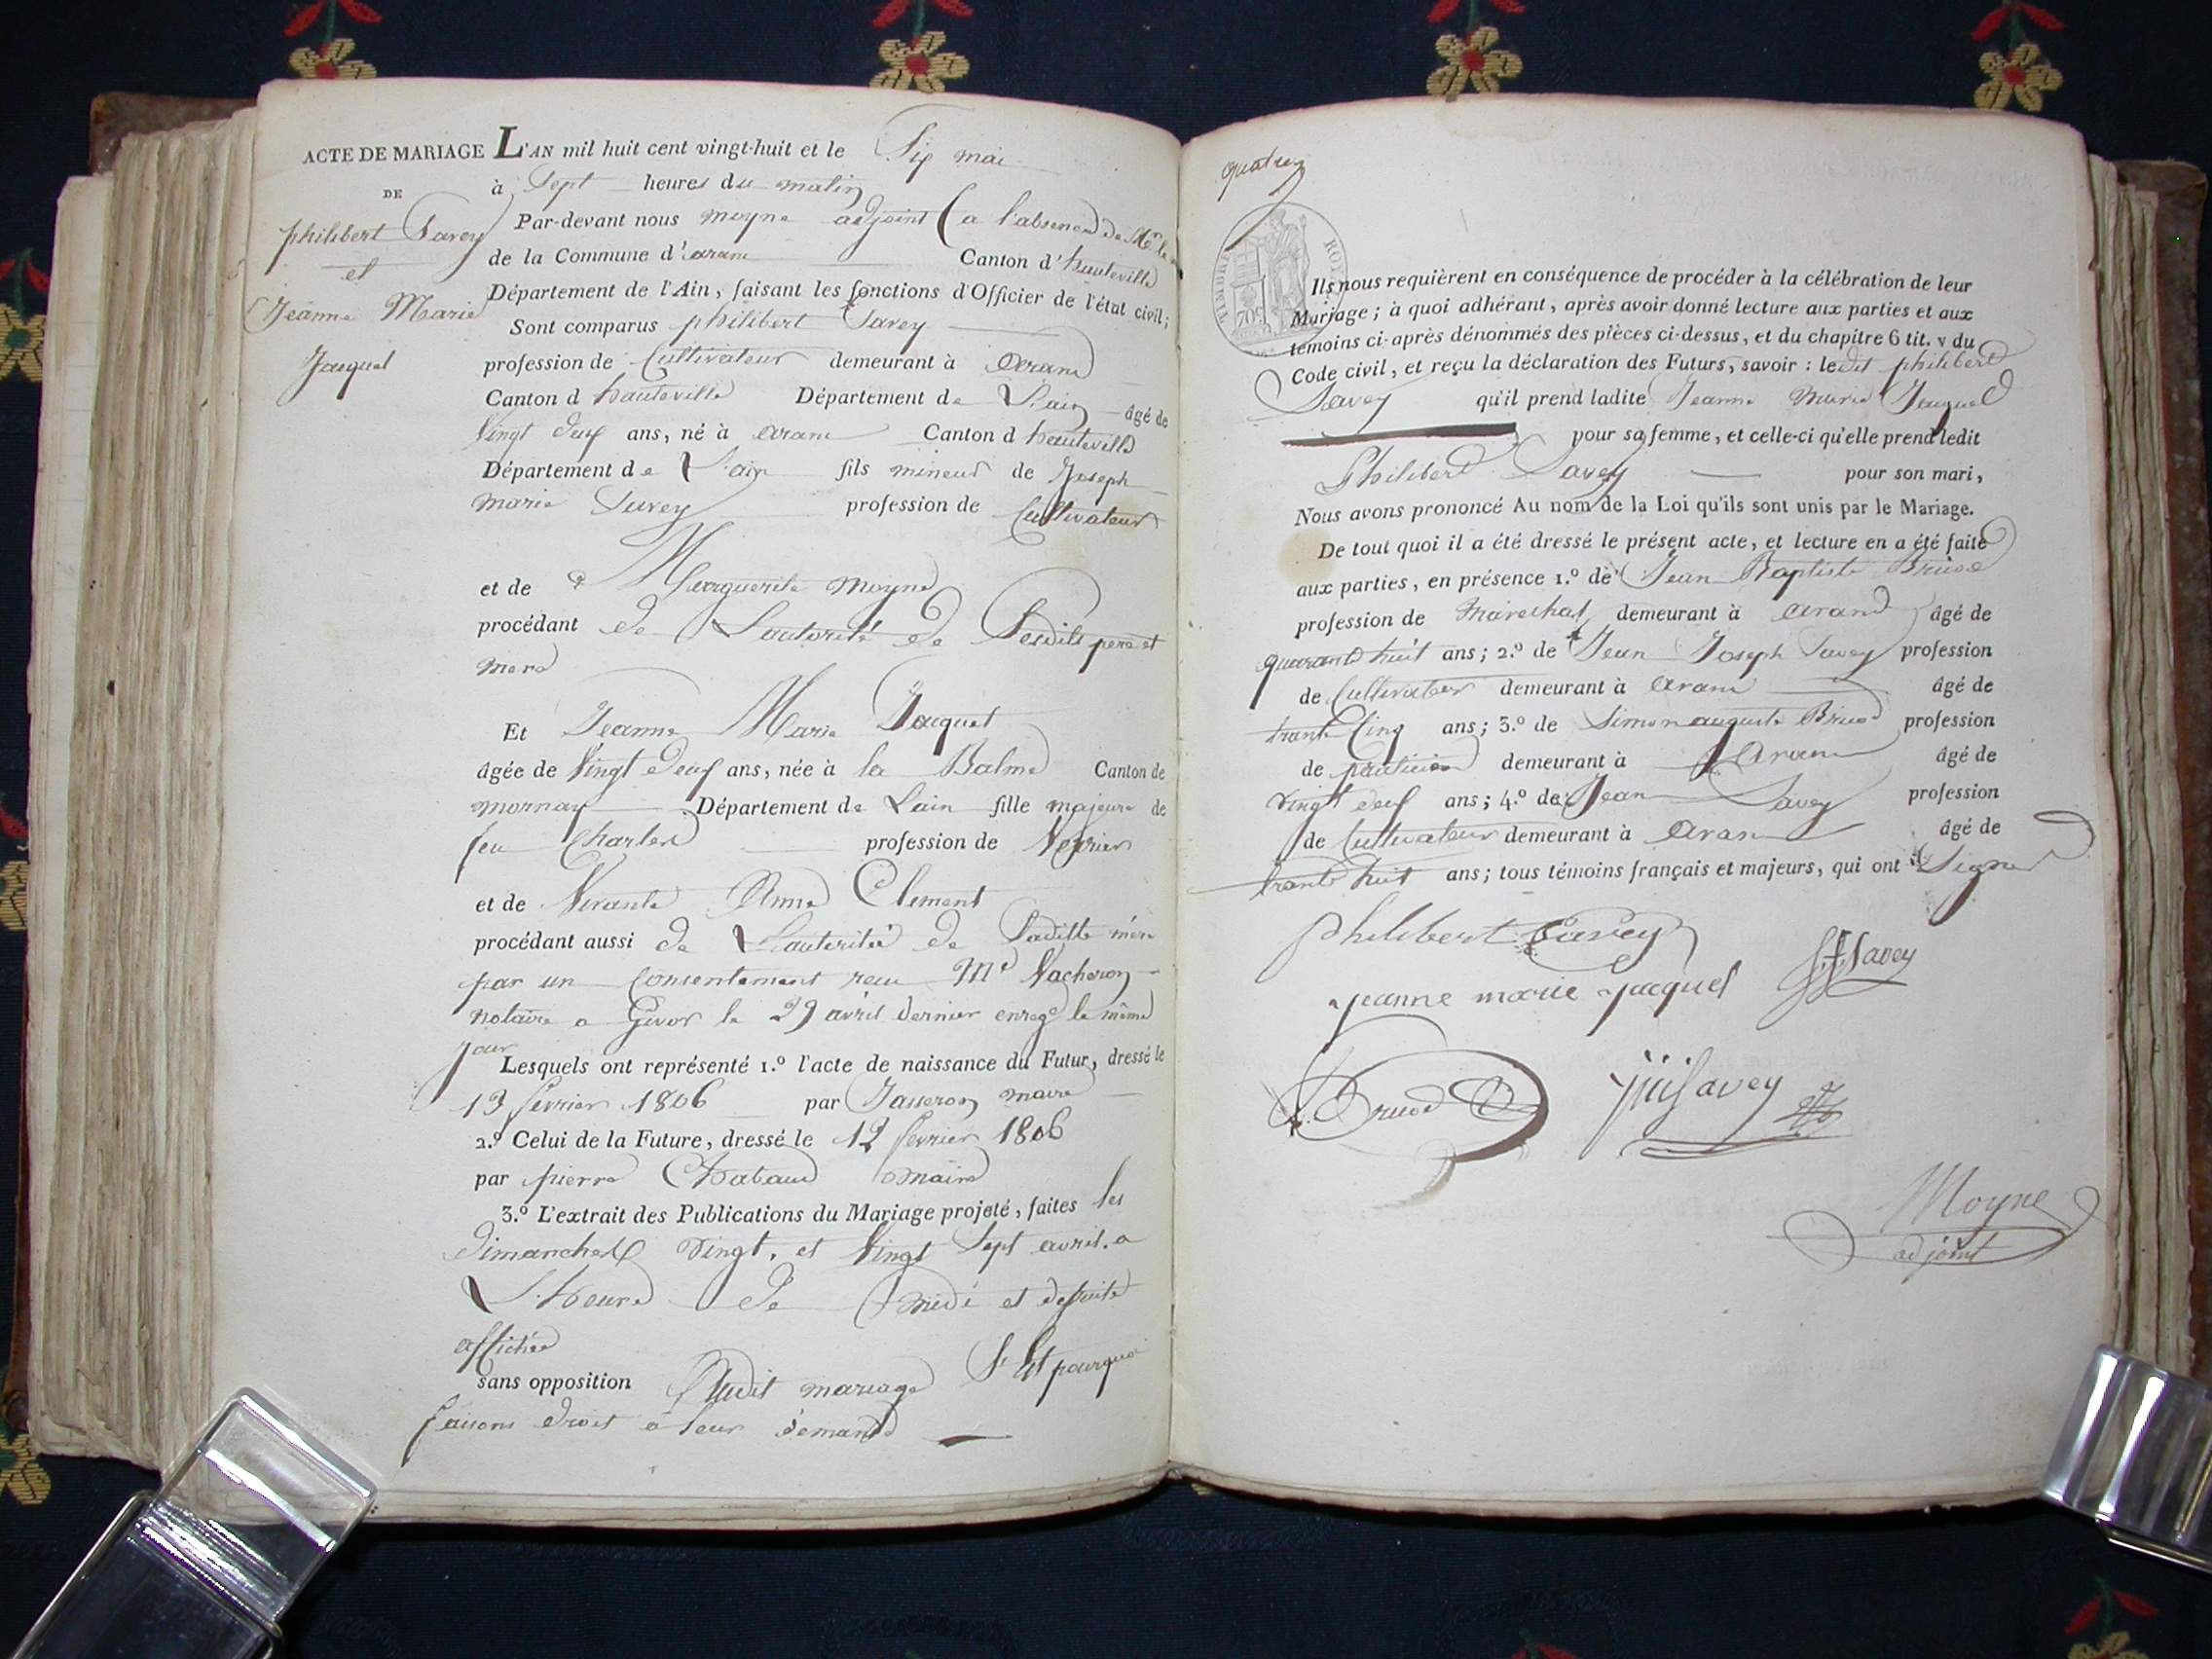 ACTE DE MARIAGE
DE
philibert Savey
et
Jeanne Marie
Jacquet
L'AN mil huit cent vingt-huit et le Six mai
à Sept heures du matin
Par-devant nous moyne adjoint (a l'absence de Mr le
de la Commune d'arane Canton d'hauteville
Département de l'Ain, faisant les fonctions d'Officier de l'état civil;
Sont comparus philibert Savey
profession de Cultivateur demeurant à arane
Canton d hauteville Département de L'ain âgé de
vingt deux ans, né à arane Canton d hauteville
Département de L'ain fils mineur de Joseph
marie Savey profession de Cultivateur
et de Marguerite moyne
procédant de L'autorité de Sesdits pere et
mere
Et Jeanne Marie Jacquet
âgée de vingt deux ans, née à la Balme Canton de
mornay Département de Lain fille majeure de
feu Charles profession de Verrier
et de vivante Anne Clement
procédant aussi de L'autorité de Laditte mère
par un Consentement recu Me Vacheron
notaire a Givor le 29 avril dernier enregé le même
jour
Lesquels ont représenté 1.º l'acte de naissance du Futur, dressé le
13 fevrier 1806 par Jasseron maire
2.º Celui de la Future, dressé le 12 fevrier 1806
par pierre Chabaud maire
3.º L'extrait des Publications du Mariage projeté, faites les
dimanches vingt, et vingt Sept avril. a
L'heure de midi et desuite
affichée
sans opposition Audit mariage C'est pourquoi
faisons droit a leur demande
quatre
TIMBRE ROYAL
70c
Ils nous requièrent en conséquence de procéder à la célébration de leur
Mariage; à quoi adhérant, après avoir donné lecture aux parties et aux
témoins ci-après dénommés des pièces ci-dessus, et du chapitre 6 tit. v du
Code civil, et reçu la déclaration des Futurs, savoir: ledit philibert
Savey qu'il prend ladite Jeanne Marie Jacquet
pour sa femme, et celle-ci qu'elle prend ledit
Philibert Savey pour son mari,
Nous avons prononcé Au nom de la Loi qu'ils sont unis par le Mariage.
De tout quoi il a été dressé le présent acte, et lecture en a été faite
aux parties, en présence 1.º de Jean Baptiste Bruod
profession de Marechal demeurant à arane âgé de
quarante huit ans; 2.º de Jean Joseph Savey profession
de Cultivateur demeurant à arane âgé de
trante Cinq ans; 3.º de Simon auguste Bruod profession
de praticien demeurant à Arane âgé de
vingt deux ans; 4.º de Jean Savey profession
de Cultivateur demeurant à Arane âgé de
trante huit ans; tous témoins français et majeurs, qui ont Signer
philibert Savey
J J Savey
jeanne marie jacquet
Bruod
Savey
Moyne
adjoint